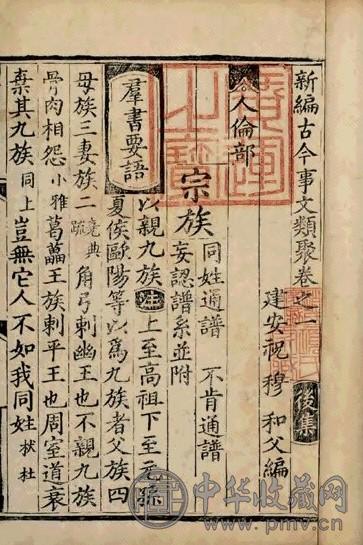 新編古今事文類聚卷之一 後集
建安祝 穆 和父編
人倫部
宗族 同姓通譜 不肯通譜
妄認譜系並附
羣書要語 以親九族 註 上至高祖下至玄孫
夏侯歐陽等以爲九族者父族四
母族三妻族二 堯典疏 角弓刺幽王也不親九族
骨肉相怨 小雅 葛藟王族刺平王也周室道衰
棄其九族 同上 豈無它人不如我同姓 杕杜
中华收藏网
www.pmv.cn